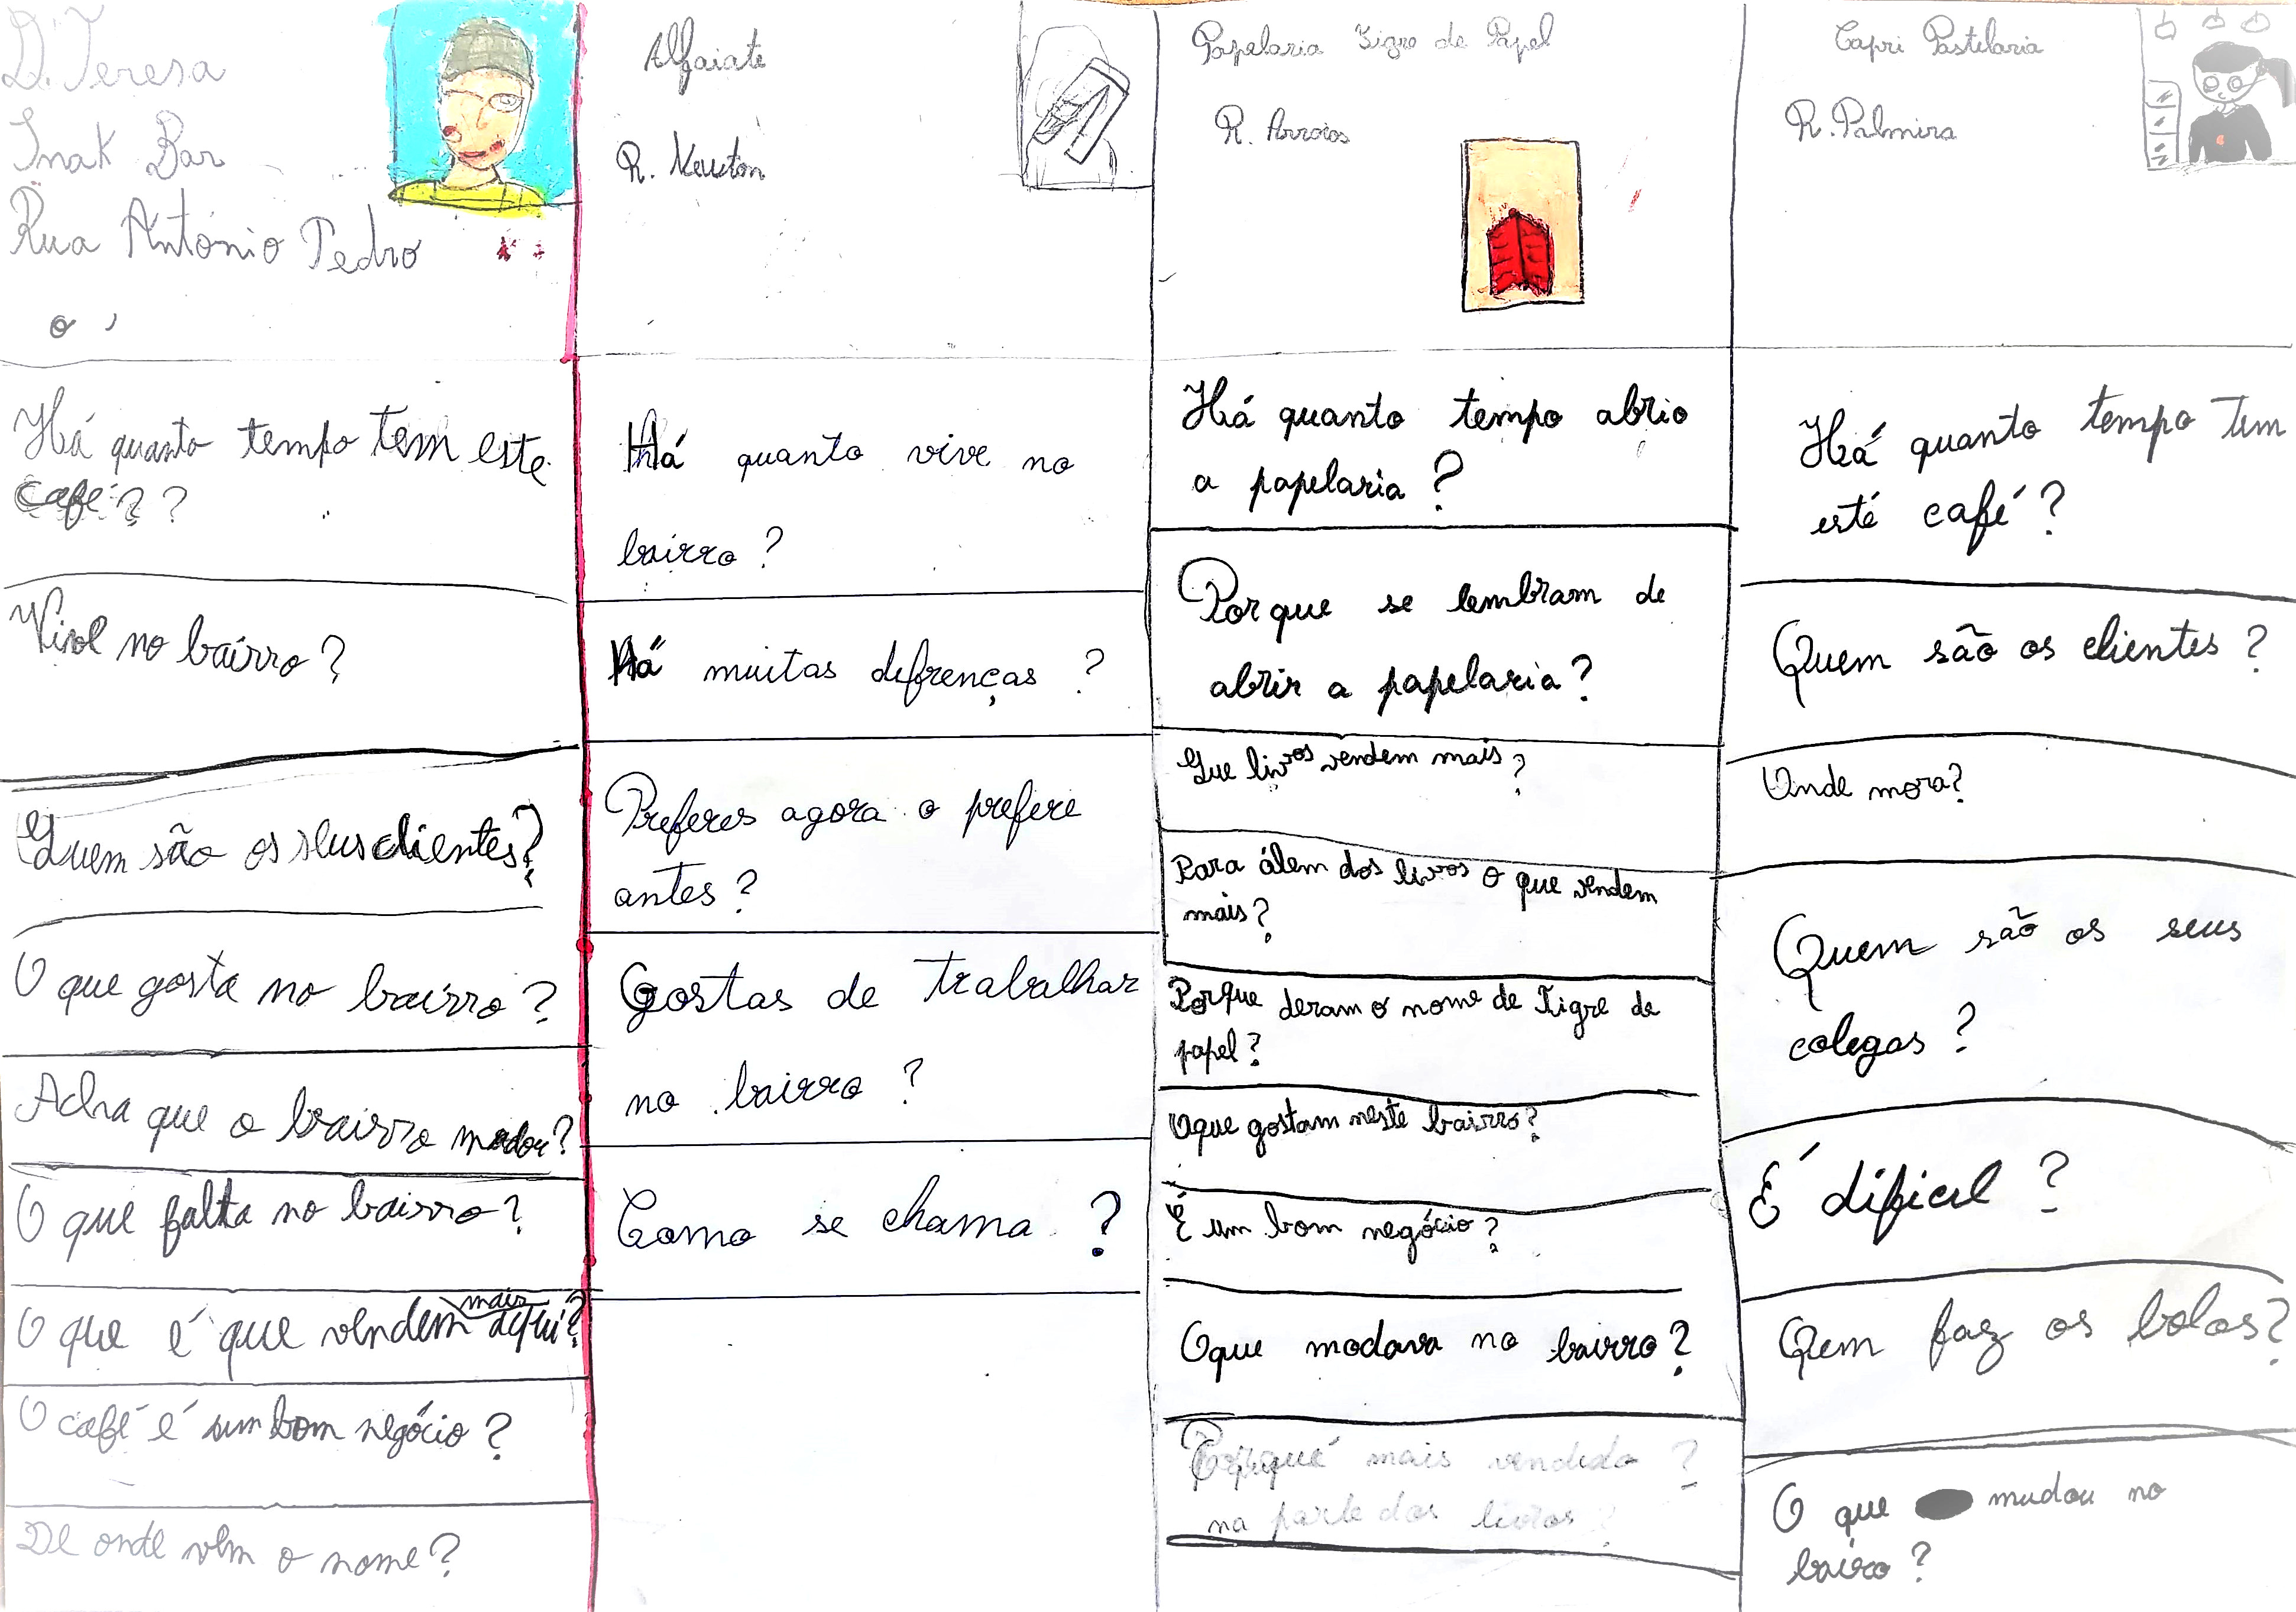 D. Teresa
Inak Bar
Rua António Pedro
Há quanto tempo tem este
café??
Vive no bairro?
Quem são os seus clientes?
O que gosta no bairro?
Acha que o bairro mudou?
O que falta no bairro?
mais
O que é que vendem aqui?
O café é um bom negócio?
De onde vem o nome?
Alfaiate
R. Newton
Há quanto vive no
bairro?
Há muitas difrenças?
Preferes agora o prefere
antes?
Gostas de trabalhar
no bairro?
Como se chama?
Papelaria Tigre de Papel
R. Arroios
Há quanto tempo abrio
a papelaria?
Porque se lembram de
abrir a papelaria?
Que livros vendem mais?
Para álem dos livros o que vendem
mais?
Porque deram o nome de Tigre de
papel?
Oque gostam neste bairro?
É um bom negócio?
Oque modava no bairro?
mais vendido?
na parte dos livros?
Capri Pastelaria
R. Palmira
Há quanto tempo tem
esté café?
Quem são os clientes?
Onde mora?
Quem são os seus
colegas?
É dificel?
Qem faz os bolos?
O que mudou no
bairro?